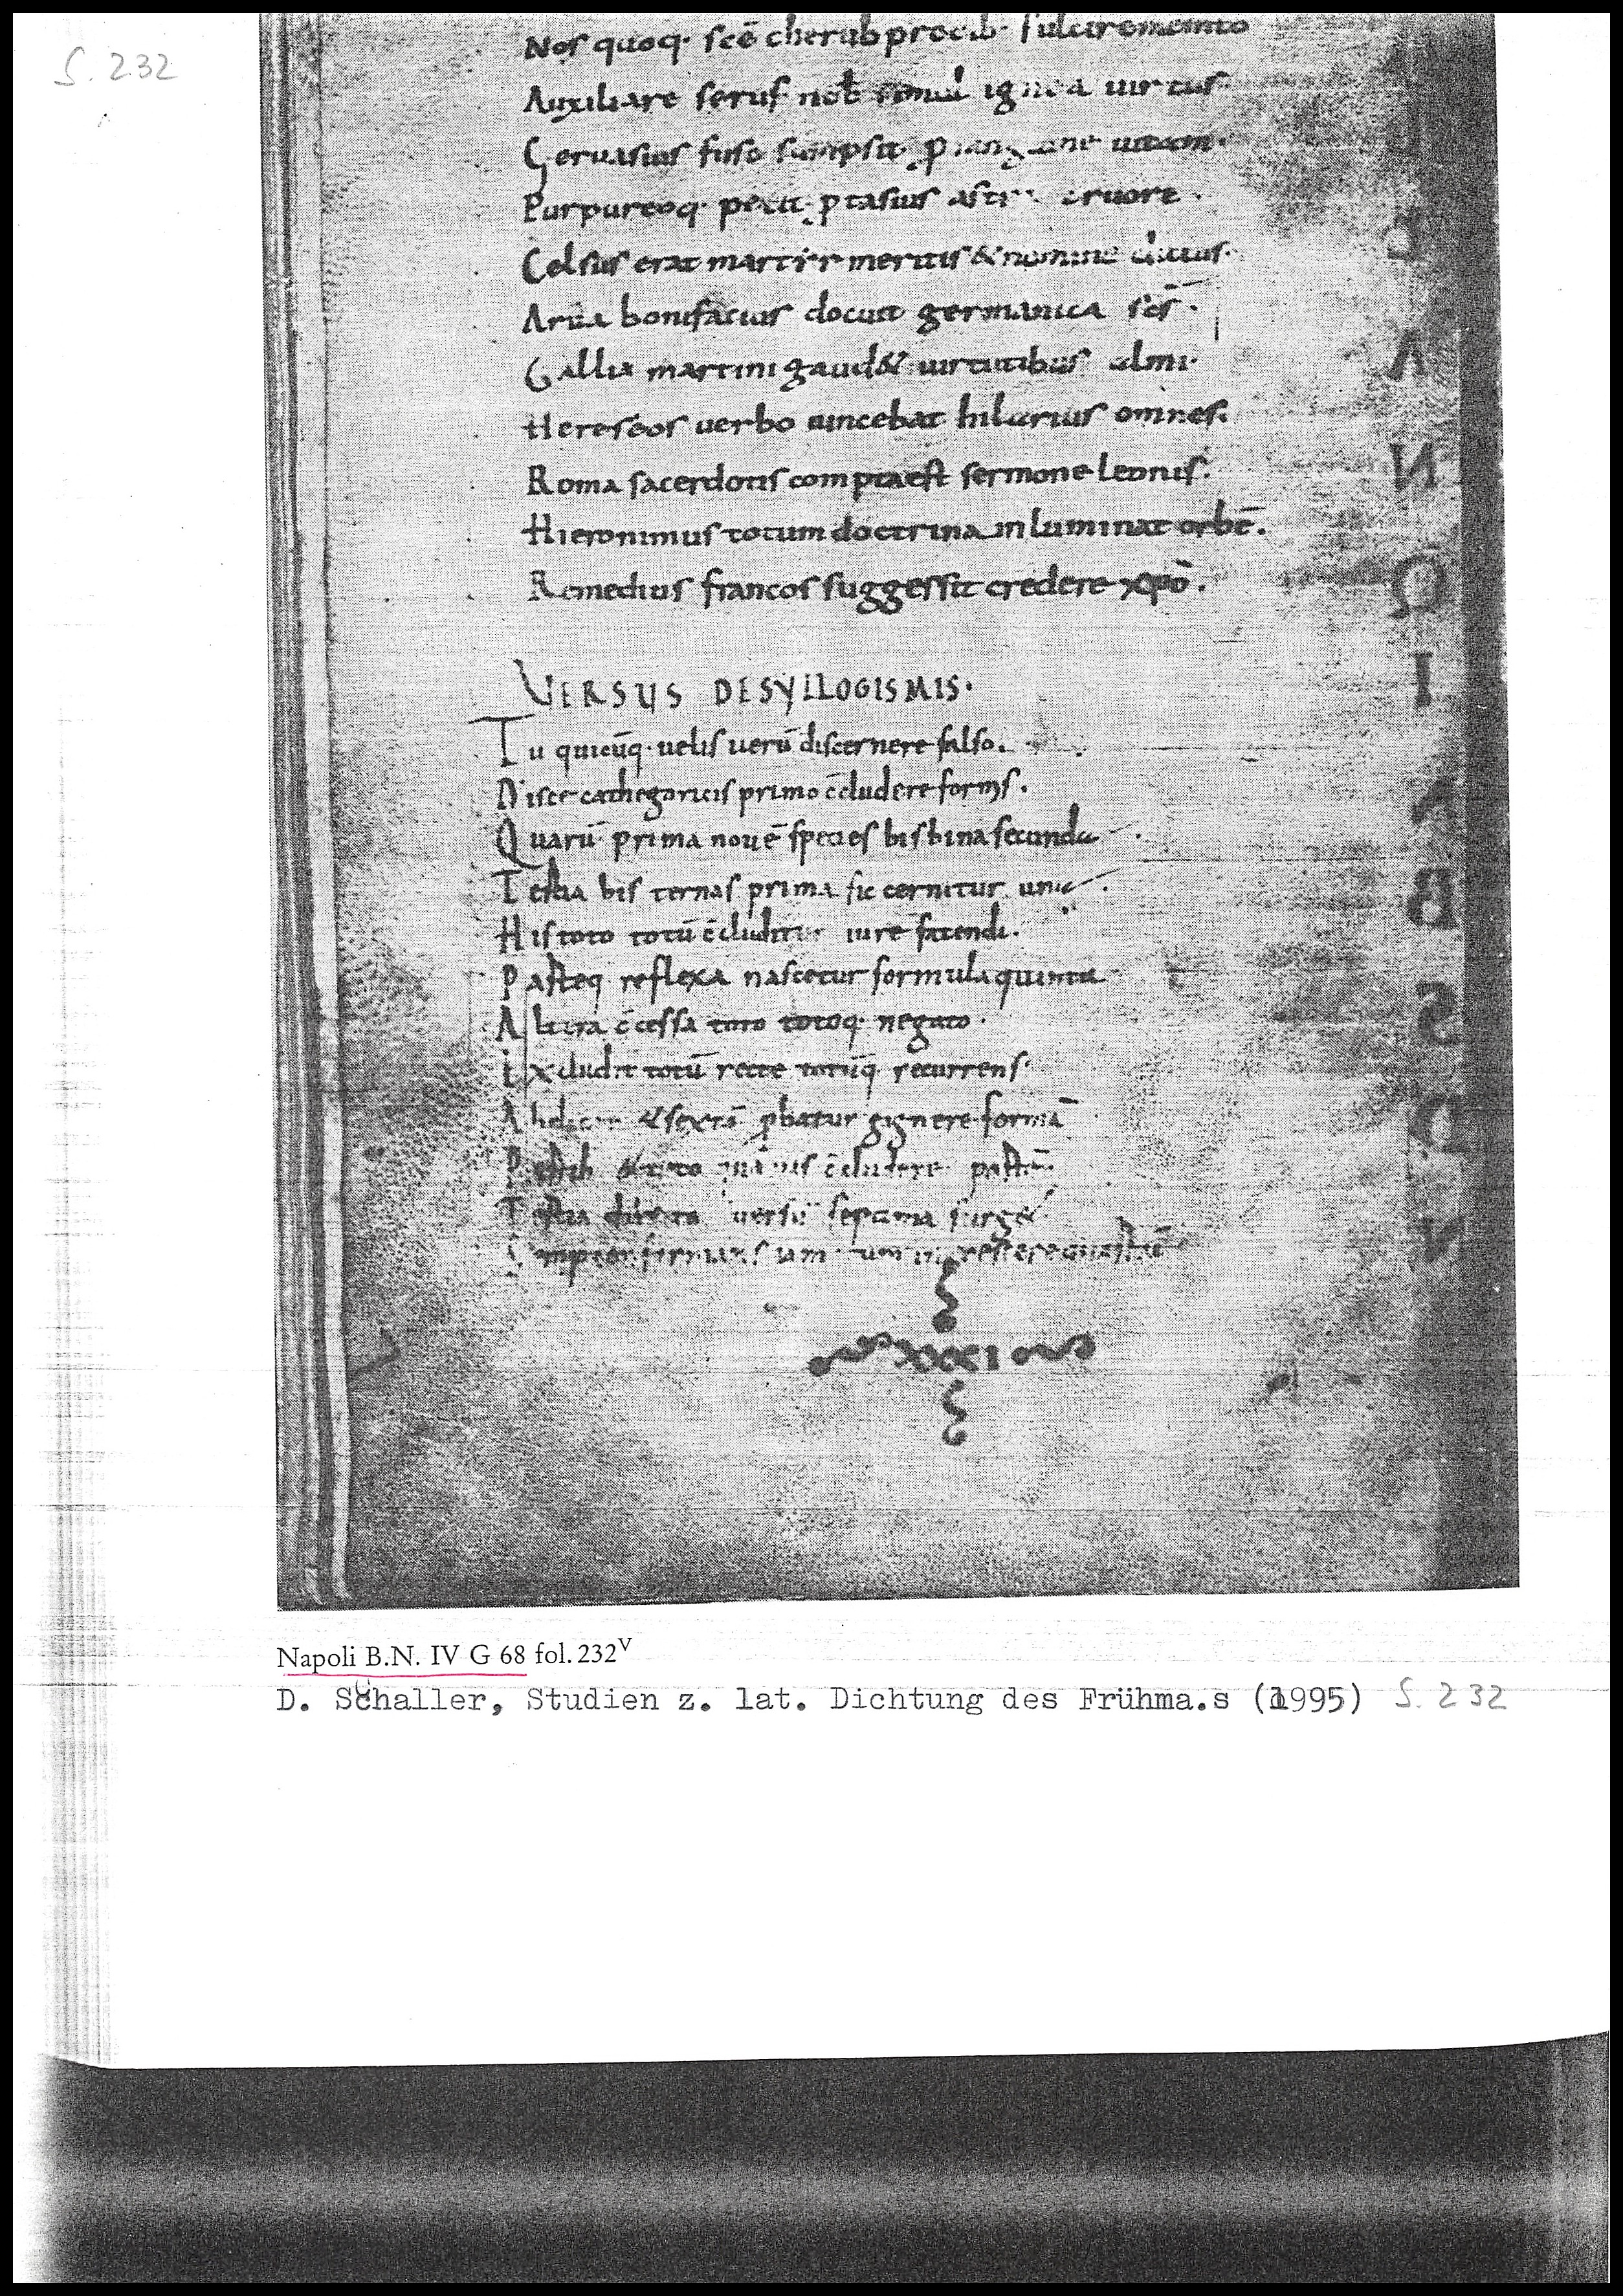 S. 232
Nos quoq· scē cherub precib· fulcire memento
Auxiliare seruis nob simul ignea uirtus
Geruasius fuso sumpsit uitam·
Purpureoq· petit ptasius astra cruore·
Celsus erat martyr meritis & nomine dictus·
Arua bonifacius docuit germanica scs·
Gallia martini gaud& uirtutibus almi·
Hereseos uerbo uincebat hilarius omnes·
Roma sacerdotis compta est sermone leonis·
Hieronimus totum doctrina inluminat orbē·
Remedius francos suggessit credere xpō·
VERSUS DE SYLLOGISMIS·
Tu quicūq· uelis uerū discernere falso·
Disce cathegoricis primo c̄cludere formis·
Quarū prima nouē species bis bina secunda
Tertia bis ternas prima sic cernitur una·
His toto totū c̄cluditur iure fatendi·
Parteq reflexa nascetur formula quinta
Altera c̄cessa toto totoq· negato·
Excludit totū recte totūq recurrens·
& sextā pbatur gignere formā
c̄cludere partē·
Tertia uersū septima surg&
XXXI
Napoli B.N. IV G 68 fol. 232v
D. Schaller, Studien z. lat. Dichtung des Frühma.s (1995) S. 232